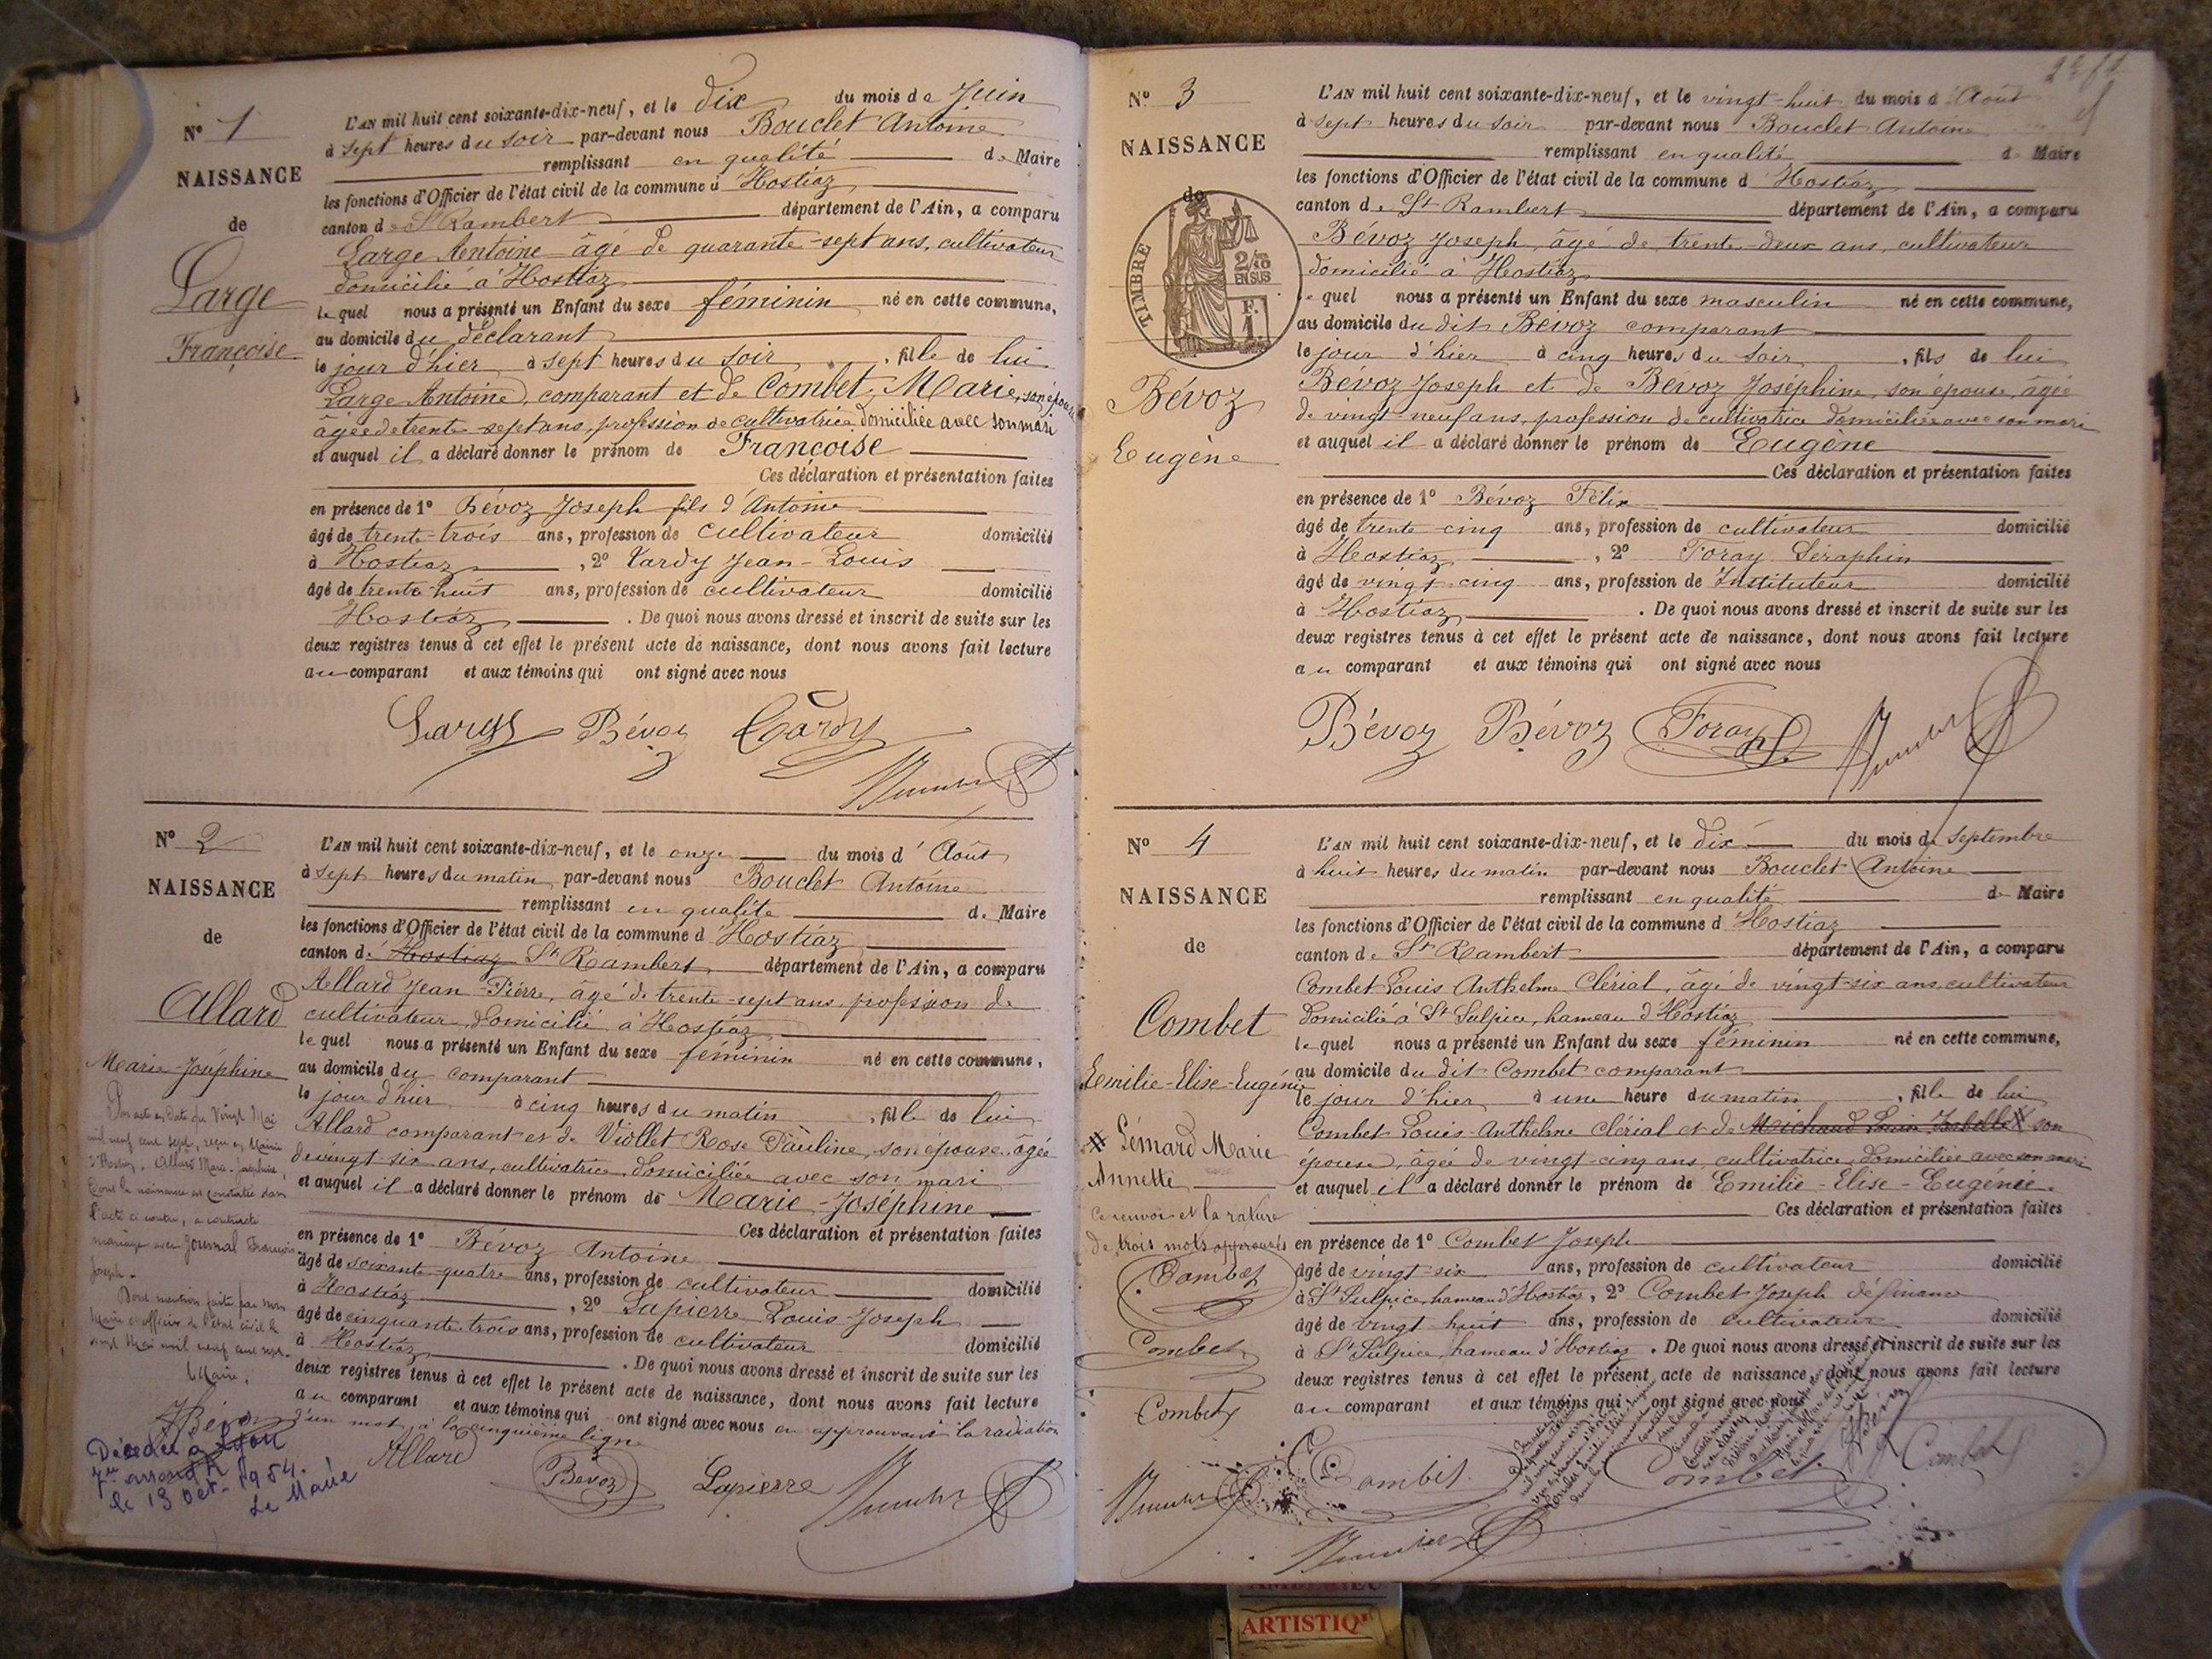 N° 1
NAISSANCE
de
Large
Françoise
L'AN mil huit cent soixante-dix-neuf, et le dix du mois de Juin
à sept heures du soir par-devant nous Bouclet Antoine
remplissant en qualité de Maire
les fonctions d'Officier de l'état civil de la commune d'Hostiaz
canton de St Rambert département de l'Ain, a comparu
Large Antoine âgé de quarante-sept ans, cultivateur
domicilié à Hostiaz
lequel nous a présenté un Enfant du sexe féminin né en cette commune,
au domicile du déclarant
le jour d'hier à sept heures du soir, fille de lui
Large Antoine, comparant et de Combet, Marie, son épouse
âgée de trente-sept ans, profession de cultivatrice domiciliée avec son mari
et auquel il a déclaré donner le prénom de Françoise
Ces déclaration et présentation faites
en présence de 1° Bévoz Joseph fils d'Antoine
âgé de trente-trois ans, profession de cultivateur domicilié
à Hostiaz, 2° Tardy Jean-Louis
âgé de trente-huit ans, profession de cultivateur domicilié
Hostiaz. De quoi nous avons dressé et inscrit de suite sur les
deux registres tenus à cet effet le présent acte de naissance, dont nous avons fait lecture
au comparant et aux témoins qui ont signé avec nous
Large Bévoz Tardy
N° 2
NAISSANCE
de
Allard
Marie-Joséphine
L'AN mil huit cent soixante-dix-neuf, et le onze du mois d'Août
à sept heures du matin par-devant nous Bouclet Antoine
remplissant en qualité de Maire
les fonctions d'Officier de l'état civil de la commune d'Hostiaz
canton d'Hostiaz St Rambert département de l'Ain, a comparu
Allard Jean-Pierre, âgé de trente-sept ans, profession de
cultivateur, domicilié à Hostiaz
lequel nous a présenté un Enfant du sexe féminin né en cette commune,
au domicile du comparant
le jour d'hier à cinq heures du matin, fille de lui
Allard comparant et de Viollet Rose Pauline, son épouse, âgée
de vingt-six ans, cultivatrice domiciliée avec son mari
et auquel il a déclaré donner le prénom de Marie-Joséphine
Ces déclaration et présentation faites
en présence de 1° Bévoz Antoine
âgé de soixante-quatre ans, profession de cultivateur domicilié
à Hostiaz, 2° Lapierre Louis-Joseph
âgé de cinquante-trois ans, profession de cultivateur domicilié
à Hostiaz. De quoi nous avons dressé et inscrit de suite sur les
deux registres tenus à cet effet le présent acte de naissance, dont nous avons fait lecture
au comparant et aux témoins qui ont signé avec nous en approuvant la radiation
d'un mot à la cinquième ligne
Allard Bévoz Lapierre
Par acte en date du vingt Mai
mil neuf cent sept, reçu en Mairie
d'Hostiaz, Allard Marie-Joséphine,
dont la naissance est constatée dans
l'acte ci-contre, a contracté
mariage avec Journal François
Joseph.
Dont mention faite par nous
Maire et officier de l'état civil le
vingt Mai mil neuf cent sept.
Maire,
Bévoz
Décédée à Lyon
7me arrond.
le 13 Oct. 1954.
Le Maire
N° 3
NAISSANCE
de
TIMBRE
2/10
EN SUS
F.
1
Bévoz
Eugène
L'AN mil huit cent soixante-dix-neuf, et le vingt-huit du mois d'Août
à sept heures du soir par-devant nous Bouclet Antoine
remplissant en qualité de Maire
les fonctions d'Officier de l'état civil de la commune d'Hostiaz
canton de St Rambert département de l'Ain, a comparu
Bévoz Joseph, âgé de trente-deux ans, cultivateur
domicilié à Hostiaz
lequel nous a présenté un Enfant du sexe masculin né en cette commune,
au domicile du dit Bévoz comparant
le jour d'hier à cinq heures du soir, fils de lui
Bévoz Joseph et de Bévoz Joséphine, son épouse, âgée
de vingt-neuf ans, profession de cultivatrice domiciliée avec son mari
et auquel il a déclaré donner le prénom de Eugène
Ces déclaration et présentation faites
en présence de 1° Bévoz Félix
âgé de trente-cinq ans, profession de cultivateur domicilié
à Hostiaz, 2° Foray Séraphin
âgé de vingt-cinq ans, profession de Instituteur domicilié
à Hostiaz. De quoi nous avons dressé et inscrit de suite sur les
deux registres tenus à cet effet le présent acte de naissance, dont nous avons fait lecture
au comparant et aux témoins qui ont signé avec nous
Bévoz Bévoz Foray S.
N° 4
NAISSANCE
de
Combet
Emilie-Elise-Eugénie
L'AN mil huit cent soixante-dix-neuf, et le dix du mois de Septembre
à huit heures du matin par-devant nous Bouclet Antoine
remplissant en qualité de Maire
les fonctions d'Officier de l'état civil de la commune d'Hostiaz
canton de St Rambert département de l'Ain, a comparu
Combet Louis Anthelme Clérial, âgé de vingt-six ans, cultivateur
domicilié à St Sulpice, hameau d'Hostiaz
lequel nous a présenté un Enfant du sexe féminin né en cette commune,
au domicile du dit Combet comparant
le jour d'hier à une heure du matin, fille de lui
Combet Louis-Anthelme Clérial et de Michaud Isabelle X son
épouse, âgée de vingt-cinq ans, cultivatrice, domiciliée avec son mari
et auquel il a déclaré donner le prénom de Emilie-Elise-Eugénie.
Ces déclaration et présentation faites
en présence de 1° Combet Joseph
âgé de vingt-six ans, profession de cultivateur domicilié
à St Sulpice, hameau d'Hostiaz, 2° Combet Joseph
âgé de vingt-huit ans, profession de cultivateur domicilié
à St Sulpice, hameau d'Hostiaz. De quoi nous avons dressé et inscrit de suite sur les
deux registres tenus à cet effet le présent acte de naissance, dont nous avons fait lecture
au comparant et aux témoins qui ont signé avec nous
X Lémard Marie
Annette
ce renvoi et la rature
de trois mots approuvés
Combet
Combet
Combet
Combet Combet Combet
ARTISTIQ